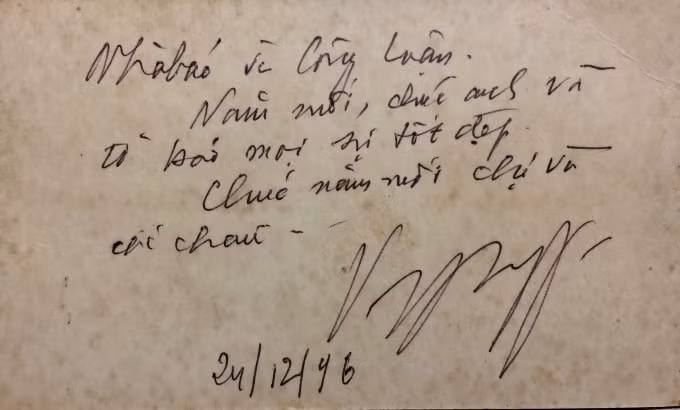 Nhà báo và Công Luận.
Năm mới, chúc anh và
tờ báo mọi sự tốt đẹp.
Chúc năm mới chị và
các cháu -
24/12/96